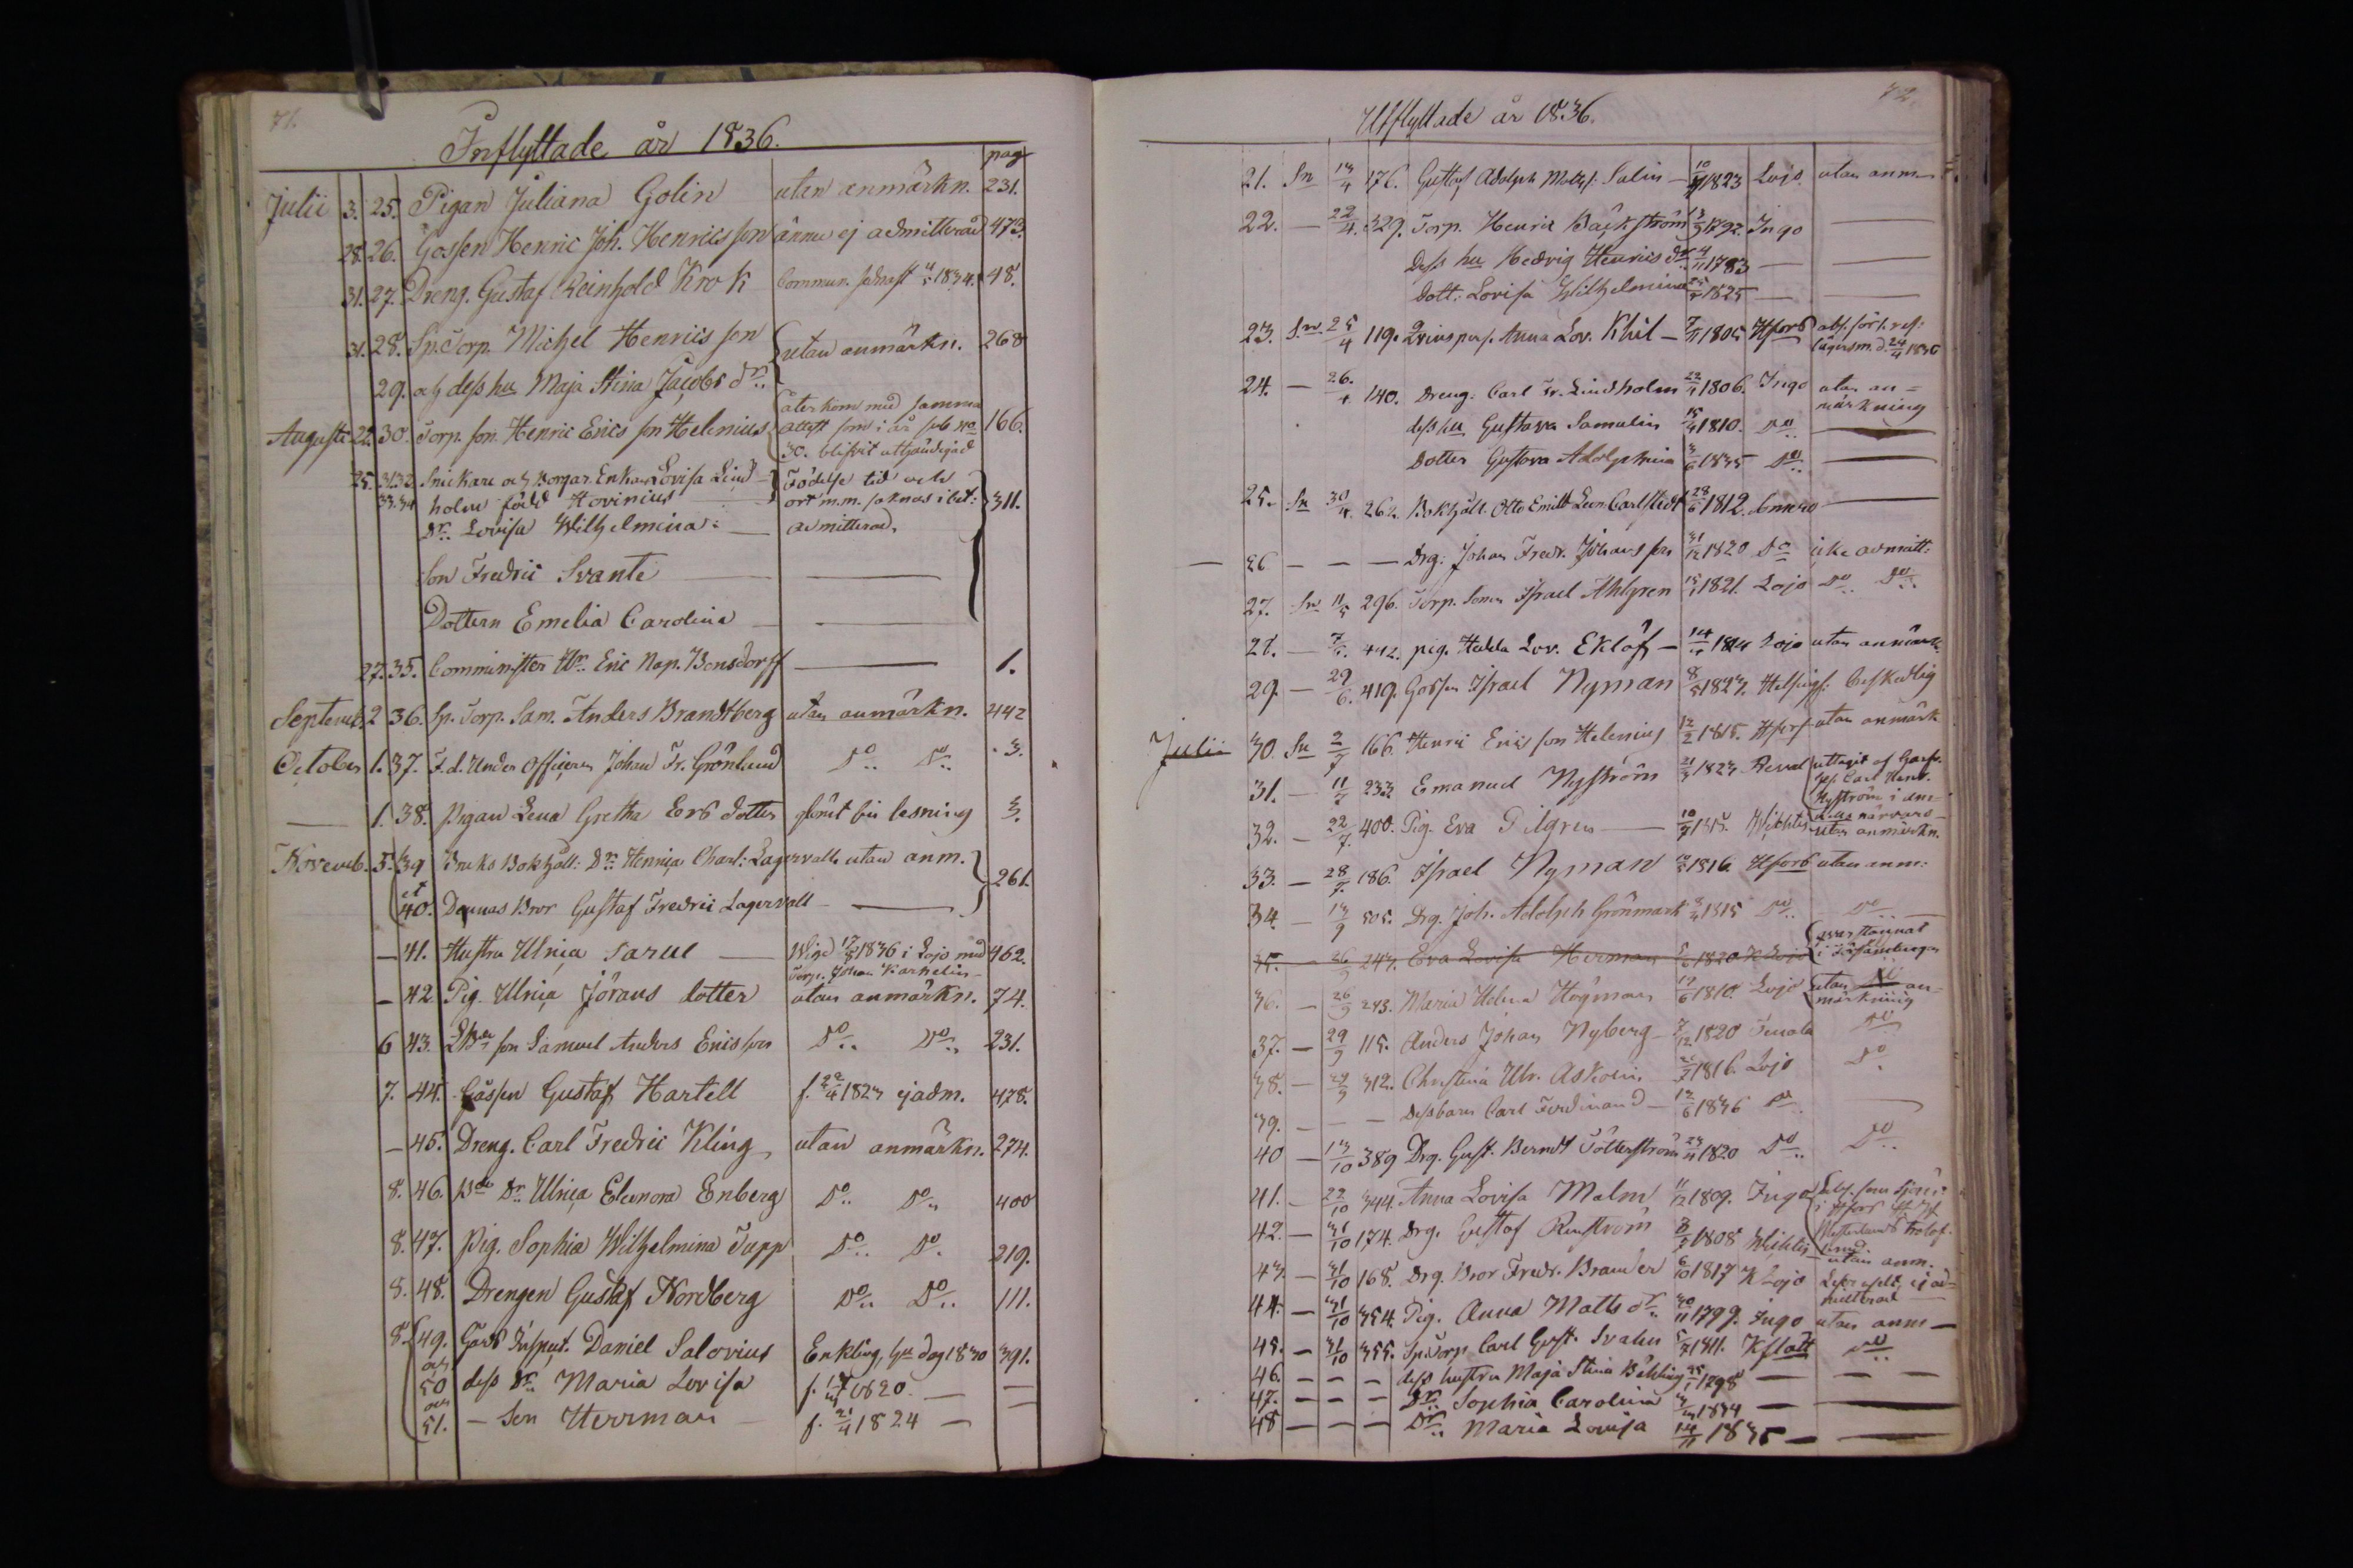 71.
Inflyttade år 1836.
pag
Julii 3. 25. Pigan Juliana Golin utan anmärkn. 231.
28. 26. Gossen Henric Joh. Henricsson ännu ej admitterad 473.
31. 27. Dreng. Gustaf Reinhold Krok Commun. 1834. 48.
31. 28. Sp. Torp. Michel Henricsson utan anmärkn. 268
29. och dess hu Maja Stina Jacobs dr
återkom med samma
Augusti 22. 30. Torp. son Henric Ericsson Helenius attest som i år sub No 166.
30. blifvit utfärdigad
25. 31. 32. Snickare och Borgar Enkan Lovisa Lind- Födelse tid och
33. 34 holm född Hovinius ort m.m. saknas i bet: 311.
Dr. Lovisa Wilhelmina admitterad,
Son Fredric Svante
Dottern Emelia Carolina
27. 35. Comminister Hr. Eric Nap. Bonsdorff 1.
Septemb. 2 36. Sp. Torp. Sam. Anders Brandtberg utan anmärkn. 442
October 1. 37. F.d. Under Officeren Johan Fr. Grönlund Do Do 3.
1. 38. Pigan Lena Gretha Ersdotter lesning 3.
Novemb. 5. 39 Bruks Bokhåll: Dr. Henrica Charl: Lagervall utan anm. 261.
et
40. Dennas Bror Gustaf Fredric Lagervall
41. Hustru Ulrica Sarul Wigd 1836 i Lojo med 462.
Torp. Johan Karhelin
42 Pig. Ulrica Jörans dotter utan anmärkn. 74.
6 43. son Samuel Anders Ericsson Do Do 231.
7. 44. Gåssen Gustaf Hartell f. 1823 ej adm. 478.
45. Dreng. Carl Fredric Kling utan anmärkn. 274.
8. 46. Dr. Ulrica Eleonora Enberg Do Do 400
8. 47. Pig. Sophia Wilhelmina Tapp Do Do 219.
8. 48. Drengen Gustaf Nordberg Do Do 111.
8. 49. Gårds Inspect. Daniel Salovius Enkling, 1830 391.
och
50 dess Dr Maria Lovisa f. 1820
och
51. Son Herrman f. 21/4 1824
72.
Utflyttade år 1836.
21. Sn 13/4 176. Gustaf Adolph Salin 1823 Lojo. utan anm
22. 22/4. 329. Torp. Henric Bäckström 1792. Ingo
Dess hu Hedvig Henrics dr 1783
Dott: Lovisa Wilhelmina 1825
23. Sn. 25/4 119. Qvinspers. Anna Lov. Khil 1805 Hfors
24. 26/4 140. Dreng. Carl Fr. Lindholm 1806. Ingo utan an=
märkning
dess hu Gustava Samulin 1810. Do
Dotter Gustava Adolphina 1835 Do
25. Sn 30/4. 262. Bokhåll. Otto Emil Leon Carlstedt 28/6 1812.
26 Drg: Johan Fredr. Johansson 31/12 1820 Do icke admitt:
27. Sn 11/5 296. Torp. Sonen Israel Ahlgren 1821. Lojo Do Do
28. 442. pig. Hedda Lov. Eklöf 1814 Lojo utan anmärk.
29. 29/6. 419. Gossen Israel Nyman 1823. Helsingf: beskedlig
Julii 30. Sn 2/7 166. Henric Ericsson Helenius 12/2 1815. Hfors utan anmärk
31. 11/7 233 Emanuel Nyström 1823 Reval uttagit af
Carl Henr.
Nyström
närvaro
32. 22/7. 400. Pig. Eva Pilgren 1815. Wichtis utan anmärkn.
33. 28/7. 186. Israel Nyman 1816. Hfors utan anm:
34. 13/9 505. Drg. Joh. Adolph Grönmark 1815 Do Do
35. 26/9 243. Eva Lovisa Herman 1820 K Lojo qvarstannat
i församlingen
36. 26/9 243. Maria Helena Högman 1810. Lojo utan an=
märkning
37. 29/9 115. Anders Johan Nyberg 7/12 1820 Tenala Do
38. 29/9 312. Christina Ulr. Askolin 1816. Lojo Do
39. Dess barn Carl Ferdinand 12/6 1836 Do
40 13/10 389 Drg. Gust. Berndt Tötterström 1820 Do Do
41. 22/10 344. Anna Lovisa Malm 1809. Ingo
42. 31/10 174. Drg. Gustaf Renström 1808 Wichtis utan anm.
43. 31/10 168. Drg. Bror Fredr. Brander 1817 K Lojo ej ad=
mitterad
44. 31/10 354. Pig. Anna Matts dr 30/11 1799. Ingo utan anm
45. 31/10 355. Sp. Torp Carl Gust. Svahn 1811. Kslätt Do
46. dess hustru Maja Stina Böhling 1798
47. Dr. Sophia Carolina 1834
48 Dr. Maria Lovisa 14/11 1835